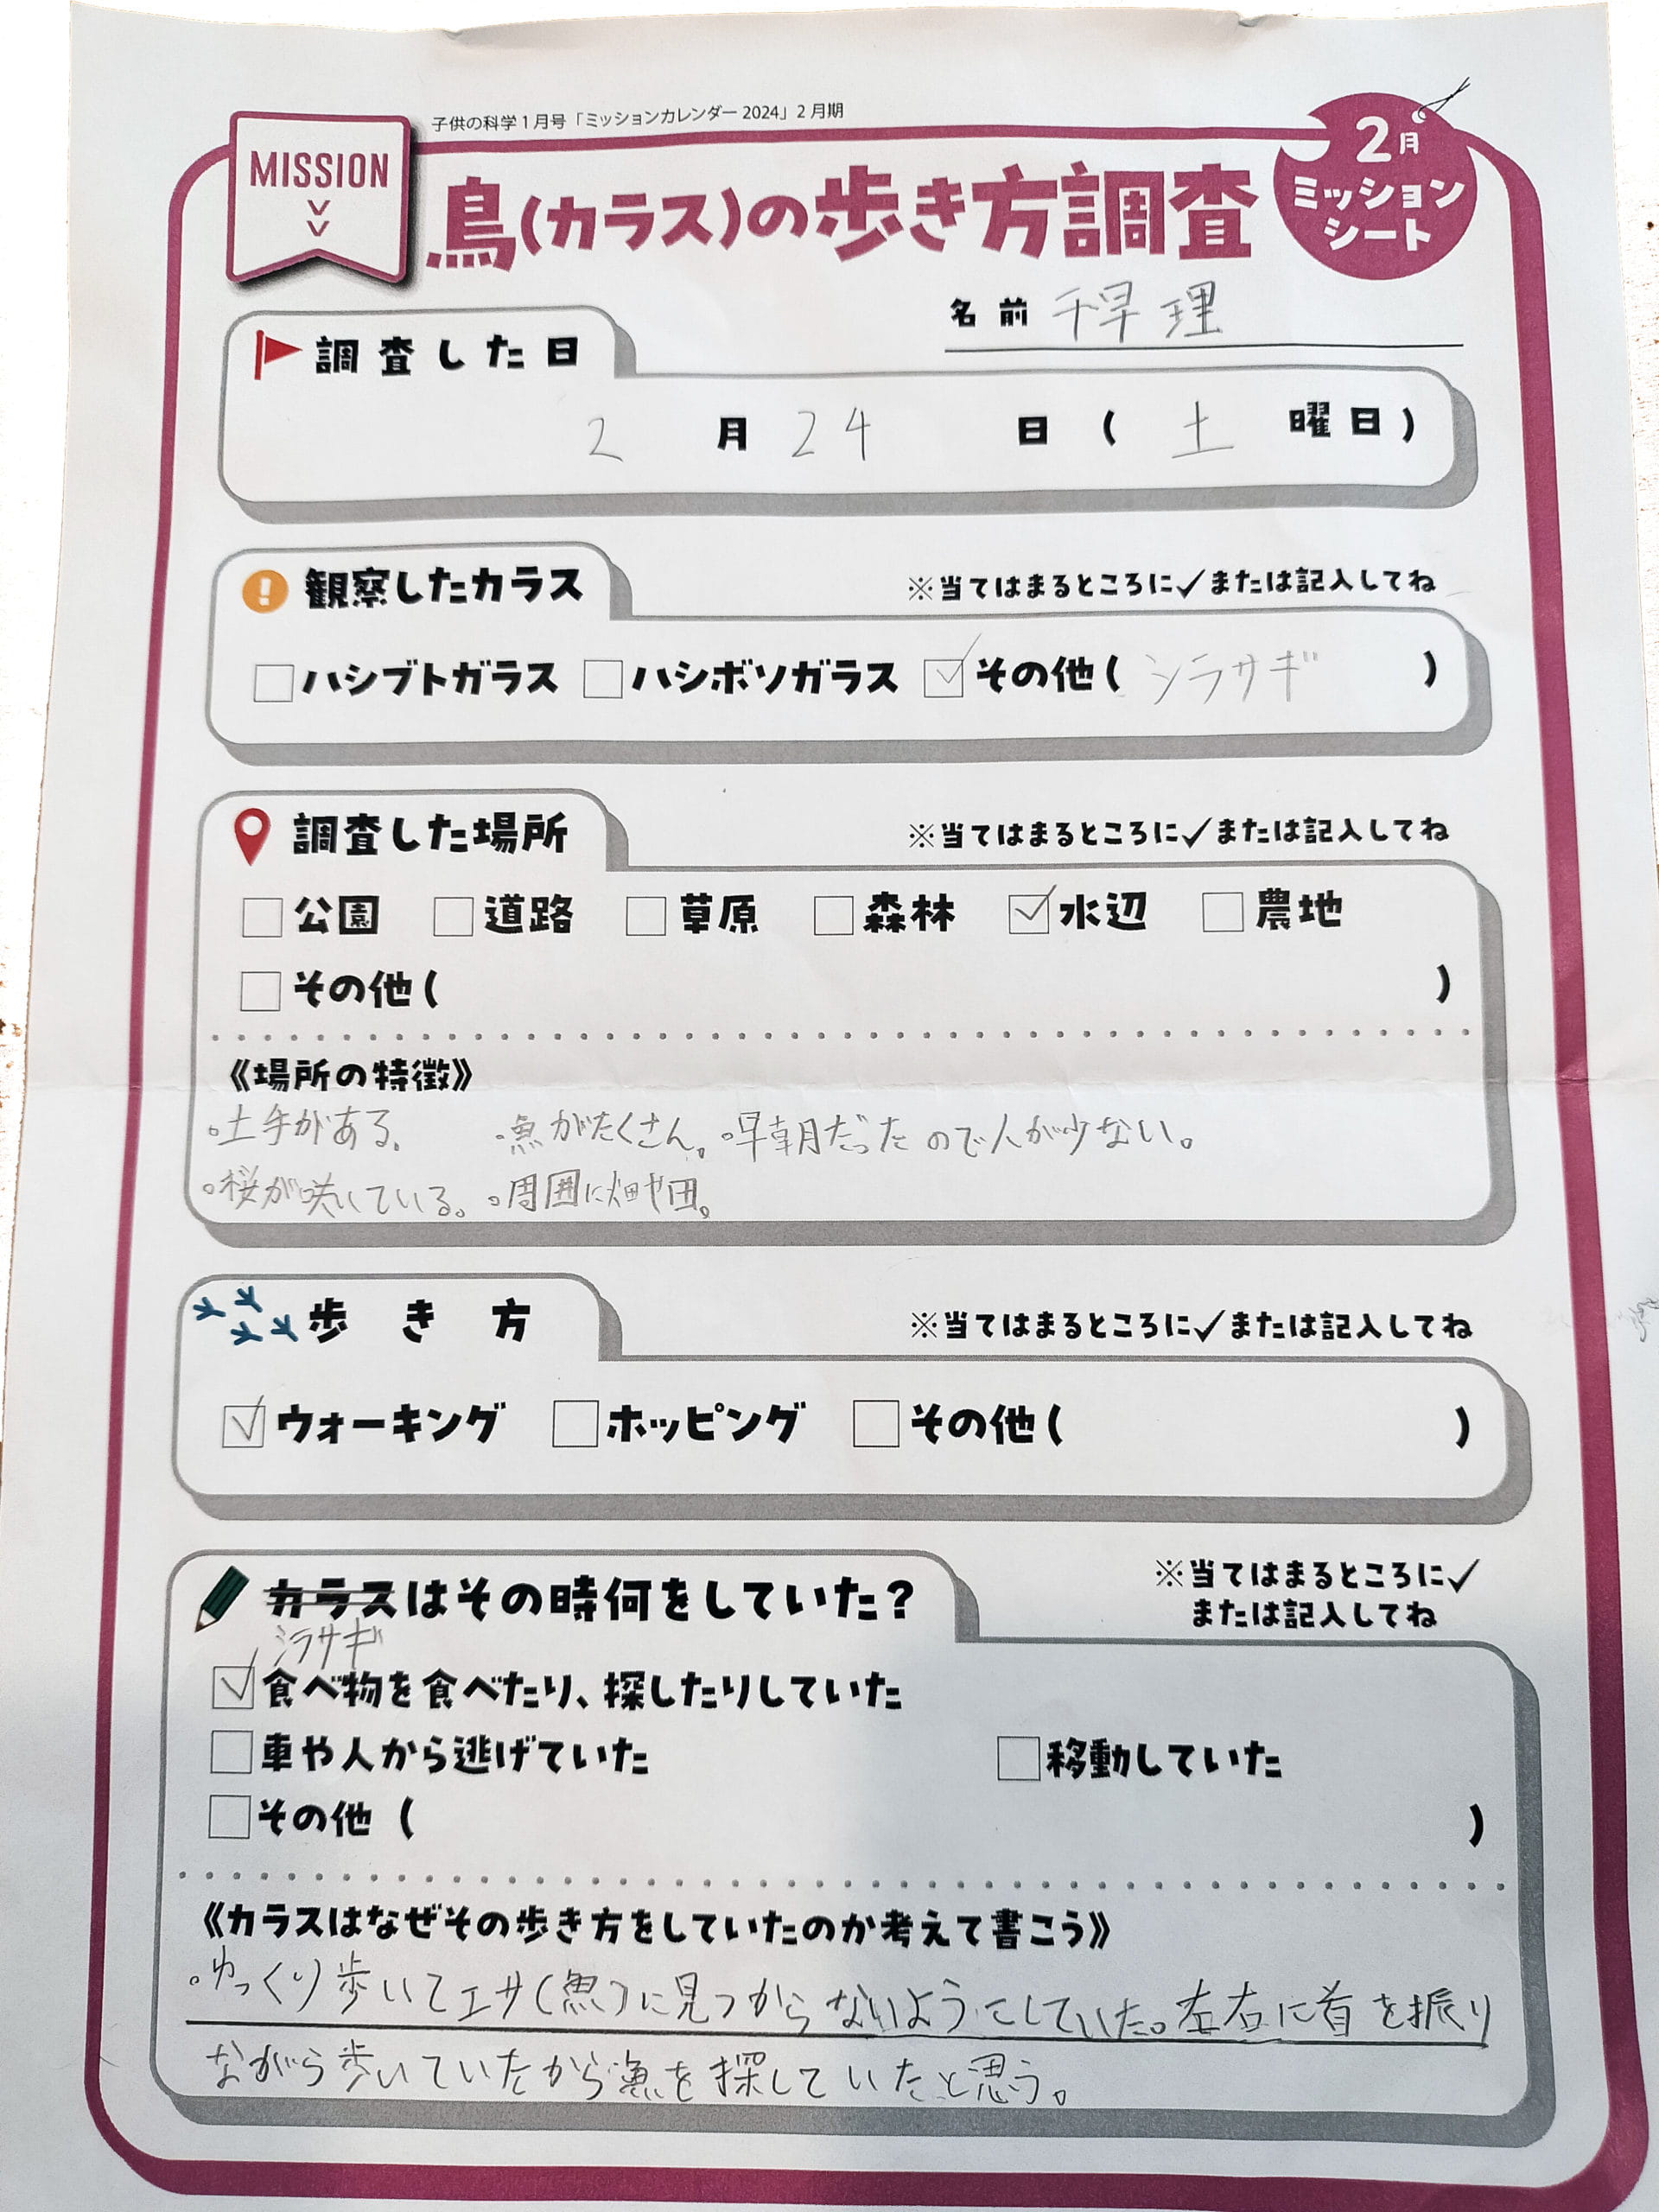 子供の科学1月号「ミッションカレンダー2024」2月期
MISSION
鳥(カラス)の歩き方調査
2月
ミッション
シート
名前 千早 理
調査した日
2月24日(土曜日)
観察したカラス ※当てはまるところに✓または記入してね
□ハシブトガラス □ハシボソガラス ☑その他(シラサギ)
調査した場所 ※当てはまるところに✓または記入してね
□公園 □道路 □草原 □森林 ☑水辺 □農地
□その他( )
《場所の特徴》
・土手がある。 ・魚がたくさん。・早朝だったので人が少ない。
・桜が咲いている。・周囲に畑や田。
歩き方 ※当てはまるところに✓または記入してね
☑ウォーキング □ホッピング □その他( )
カラスはその時何をしていた? ※当てはまるところに✓
または記入してね
シラサギ
☑食べ物を食べたり、探したりしていた
□車や人から逃げていた □移動していた
□その他( )
《カラスはなぜその歩き方をしていたのか考えて書こう》
・ゆっくり歩いてエサ(魚)に見つからないようにしていた。左右に首を振り
ながら歩いていたから漁を探していたと思う。